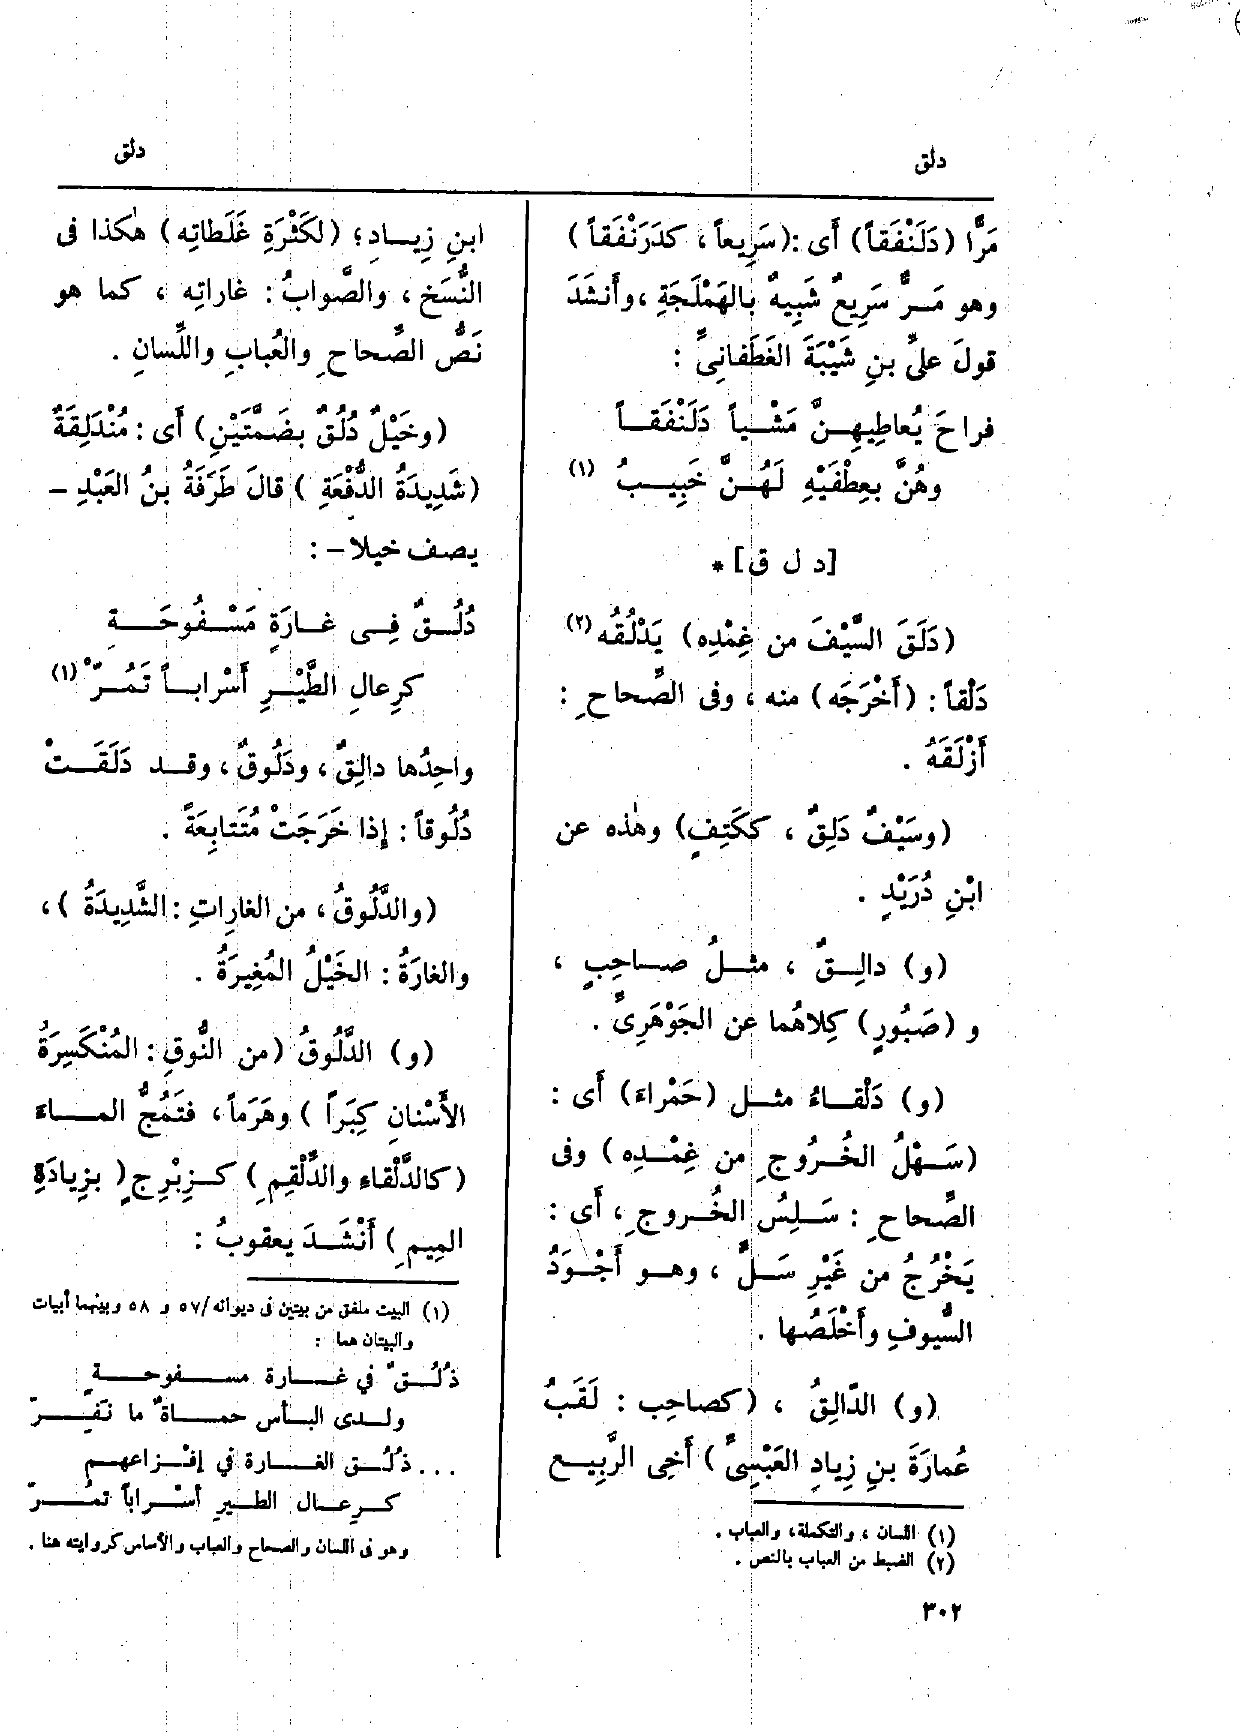 دلق
دلق
مَرًّا (دَلَنْفَقاً) أَى :(سَرِيعاً ، كدَرَنْفَقاً)
وهو مَـرٌّ سَرِيعٌ شَبِيهٌ بالهَمْلَجَةِ ،وأَنشَدَ
قولَ علىِّ بنِ شَيْبَةَ الغَطَفانِىِّ :
فراحَ يُعاطِيهِـنَّ مَشْـياً دَلَنْفَقـاً
وهُنَّ بعِطْفَيْهِ لَهُـنَّ خَبِيـبُ (١)
[د ل ق] *
(دَلَقَ السَّيْفَ من غِمْدِه) يَدْلُقُه (٢)
دَلْقاً : (أَخْرَجَه) منه ، وفى الصِّحاحِ :
أَزْلَقَهُ .
(وسَيْفٌ دَلِقٌ ، ككَتِفٍ) وهٰذه عن
ابْنِ دُرَيْدٍ .
(و) دالِـقٌ ، مثـلُ صـاحِبٍ ،
و (صَبُورٍ) كِلاهُما عن الجَوْهَرِىِّ .
(و) دَلْقـاءُ مثـل (حَمْراءَ) أَى :
(سَـهْلُ الخُـرُوجِ من غِمْـدِه) وفى
الصِّحاحِ : سَـلِسُ الخُـروجِ ، أَى :
يَخْرُجُ من غَيْرِ سَـلٍّ ، وهـو أَجْـوَدُ
السُّيوفِ وأَخْلَصُها .
(و) الدّالِقُ ، (كصاحِب : لَقَبُ
عُمارَةَ بنِ زِيادٍ العَبْسِىِّ) أَخِى الرَّبِيـع
(١) اللسان ، والتكملة، والعباب .
(٢) الضبط من العباب بالنص .
٣٠٢
ابنِ زِيـادٍ؛ (لكَثْرَةِ غَلَطاتِه) هٰكذا فى
النُّسَخ ، والصَّوابُ : غاراتِه ، كما هو
نَصُّ الصِّحاحِ والعُبابِ واللِّسانِ .
(وخَيْلٌ دُلُقٌ بضَمَّتَيْنِ) أَى : مُنْدَلِقَةٌ
(شَدِيدَةُ الدُّفْعَةِ ) قالَ طَرَفَةُ بنُ العَبْدِ –
يصف خيلا – :
دُلُـقٌ فِـى غـارَةٍ مَسْـفُوحَـةٍ
كرِعالِ الطَّيْـرِ أَسْرابـاً تَمُـرّْ (١)
واحِدُها دالِقٌ ، ودَلُوقٌ ، وقـد دَلَقَـتْ
دُلُوقاً : إِذا خَرَجَتْ مُتَتابِعَةً .
(والدَّلُوقُ ، من الغاراتِ :الشَّدِيدَةُ )،
والغارَةُ : الخَيْلُ المُغِيرَةُ .
(و) الدَّلُوقُ (من النُّوقِ : المُنْكَسِرَةُ
الأَسْنانِ كِبَراً ) وهَرَماً، فتَمُجُّ المـاءَ
(كالدَّلْقاءِ والدِّلْقِمِ) كـزِبْرِجٍ( بزِيادَةِ
المِيمِ ) أَنْشَـدَ يعقوبُ :
(١) البيت ملفق من بيتين فى ديوانه /٥٧ و ٥٨ وبينهما أبيات
والبيتان هما :
ذُلُـق ٌ في غـارة مسـفوحـةٍ
ولـدى البـأس حمـاةٌ ما نَفِـرّ
. . . ذُلُـق الغـارة في إفـزاعهـم
كـرعـال الطـير أسـراباً تمُـرّ
وهو فى اللسان والصحاح والعباب والأساس كروايته هنا .